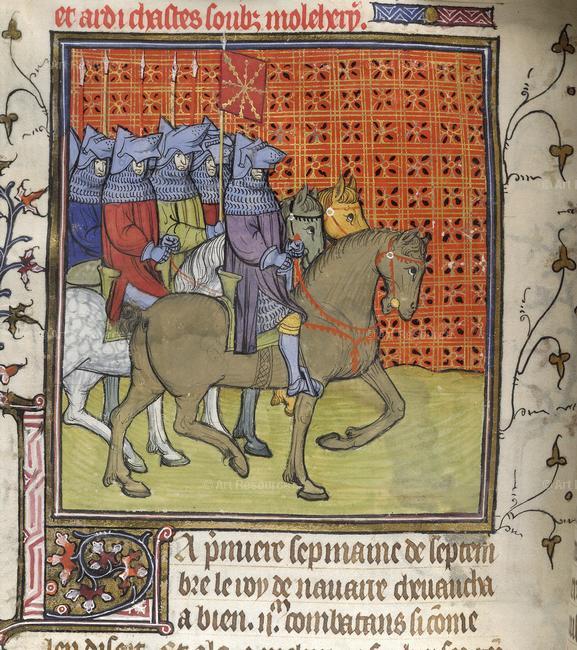 et ardi chastes soubz molehery.
La pmiere sepmaine de septem
bre le roy de nauarre cheuaucha
a bien .ij.m combatans si come
© Art Resource